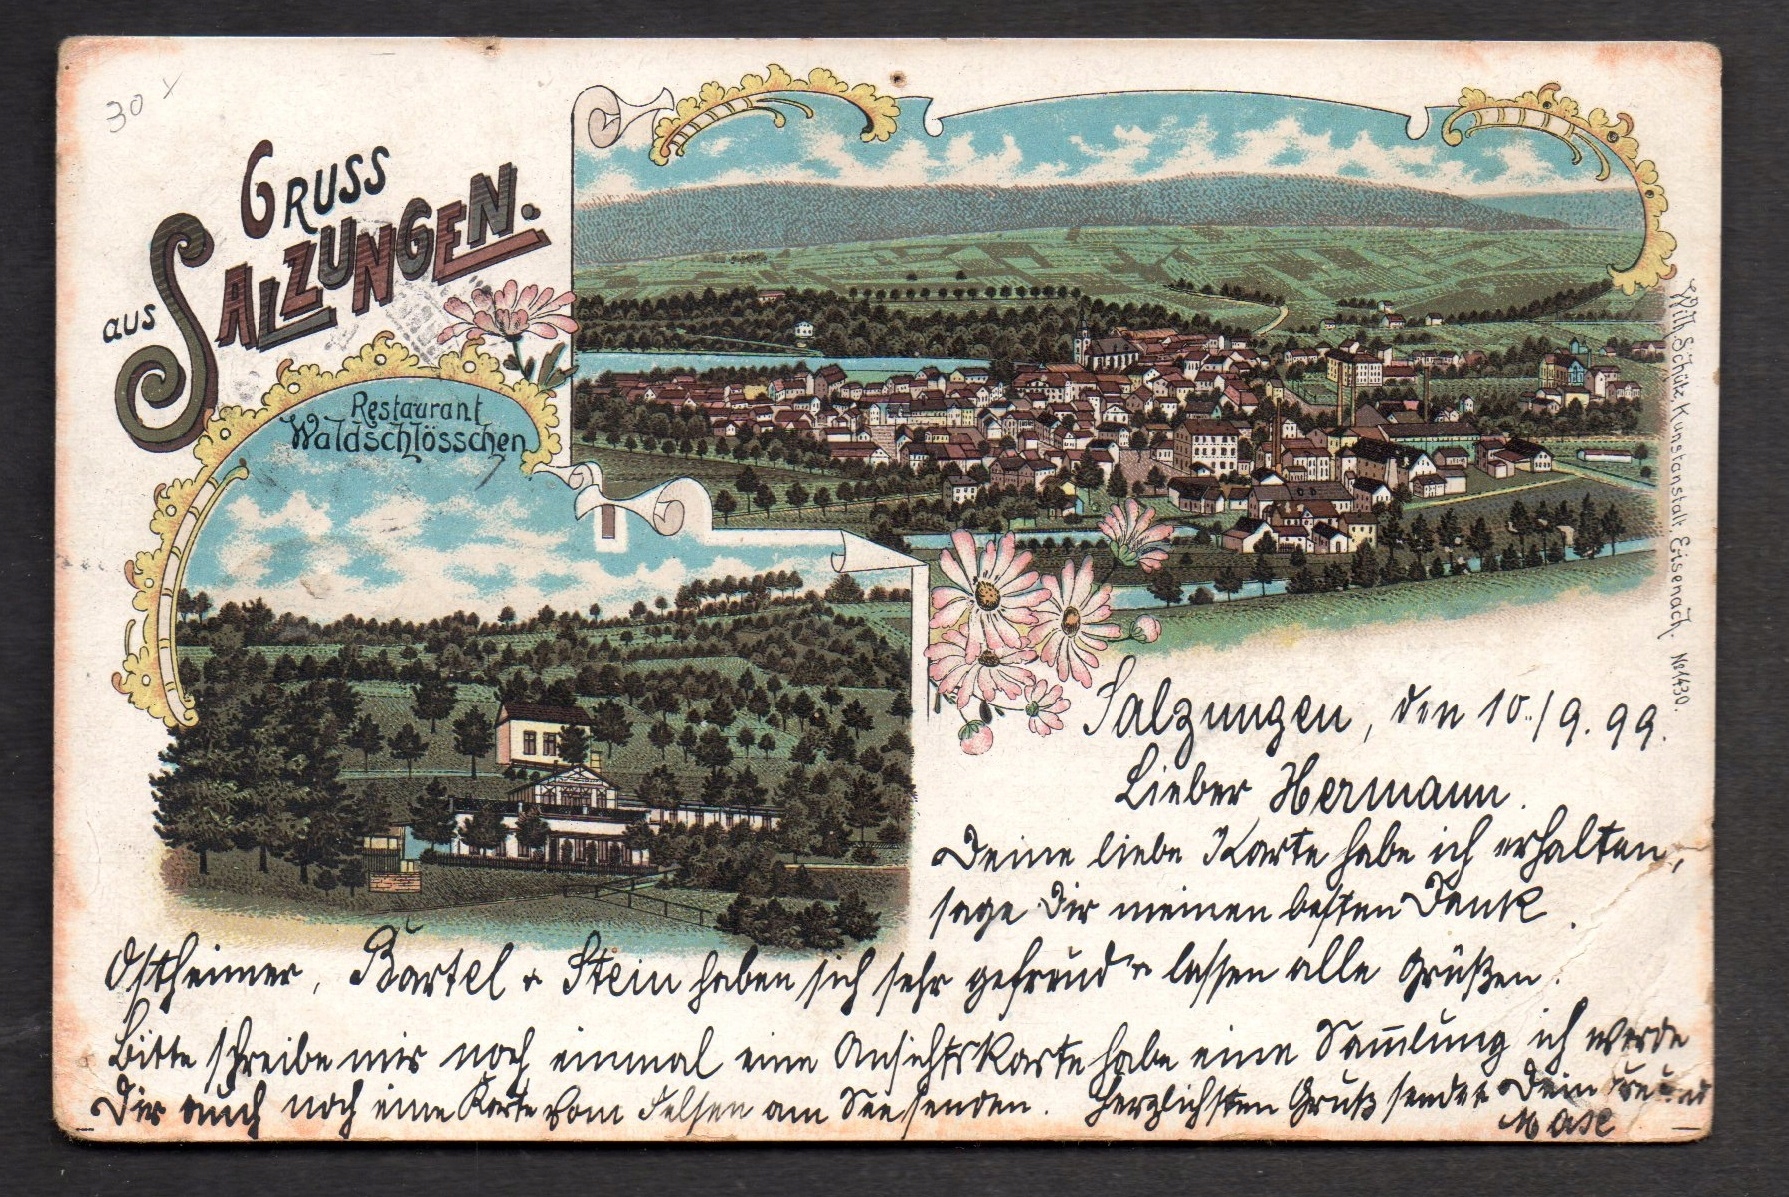 30
Gruss
aus Salzungen.
Restaurant
Waldschlösschen
Wilh. Schütz, Kunstanstalt Eisenach. No 1430.
Salzungen, den 10./9. 99.
Lieber Hermann.
Deine liebe Karte habe ich erhalten,
sage Dir meinen besten Dank.
Ostheimer, Bartel + Stein haben sich sehr gefreud + lassen alle Grüßen.
Bitte schreibe mir noch einmal eine Ansichtskarte habe eine Sam̄lung ich werde
Dir auch noch eine Karte vom Felsen am See senden. Herzlichsten Gruß sendet Dein Freund